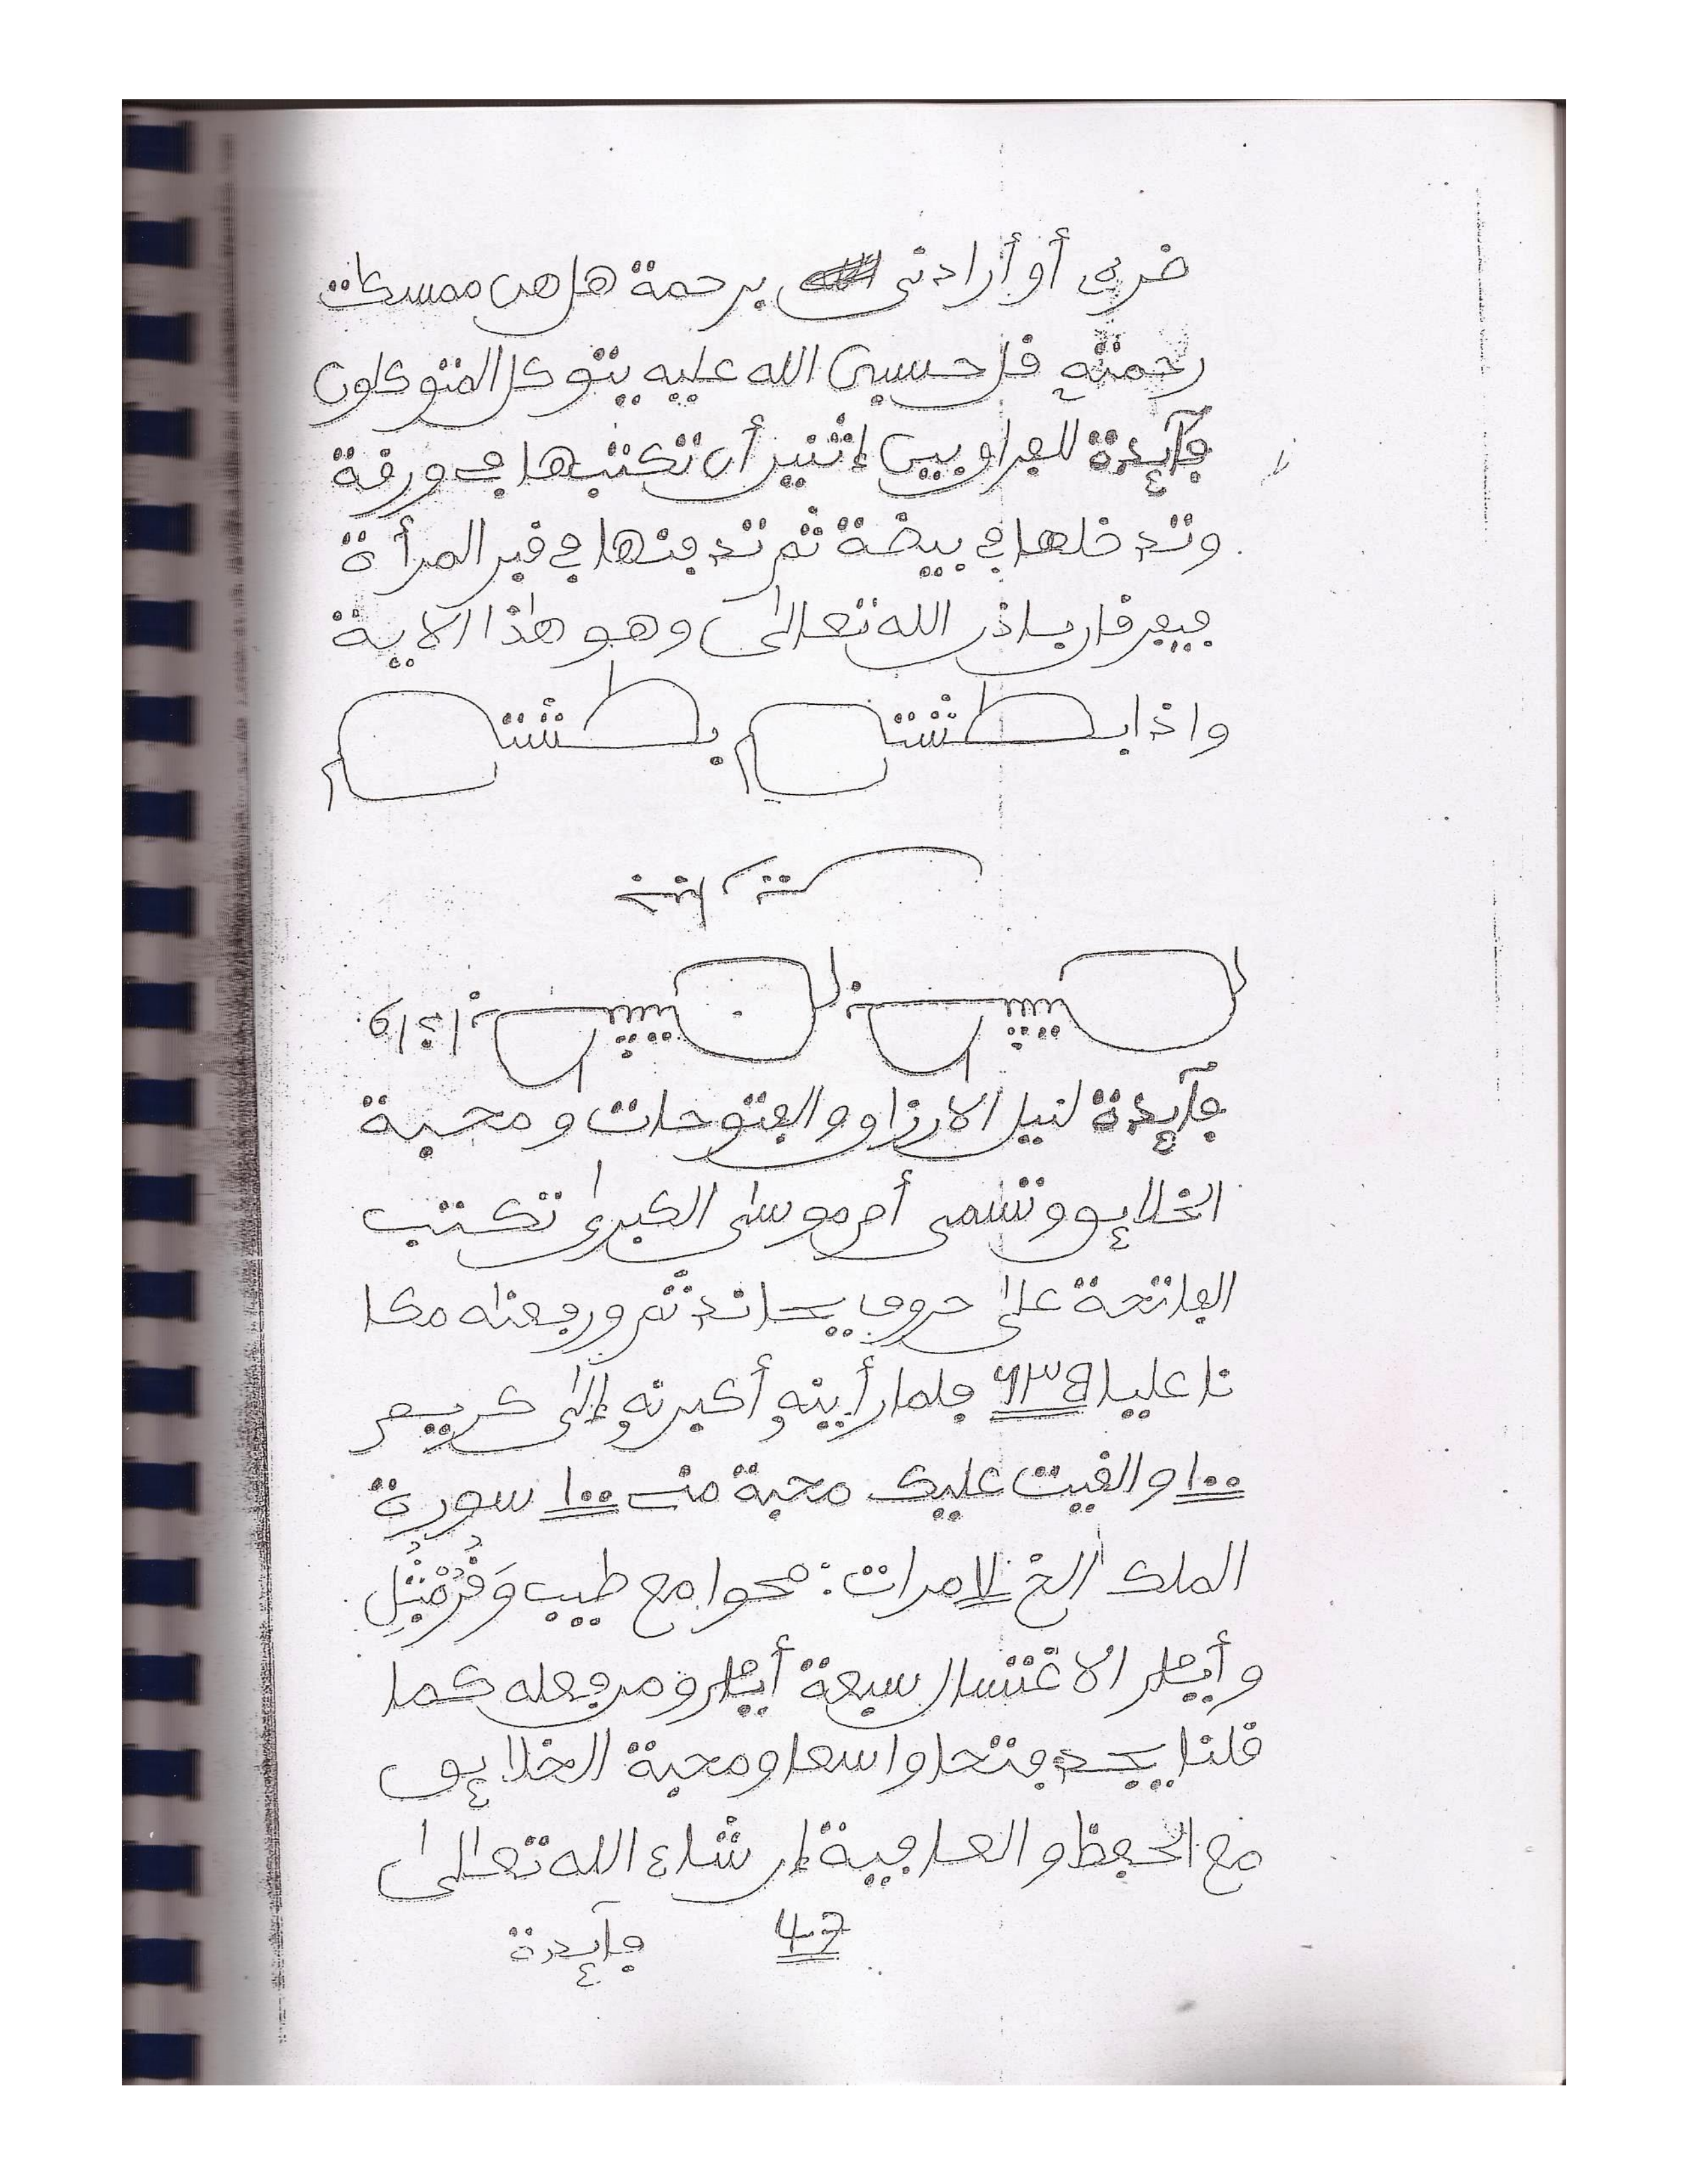 ضره أو أرادنى برحمة هل هن ممسكات
رحمته قل حسبى الله عليه يتوكل المتوكلون
فآئدة للفراق بين إثنين أن تكتبها فى ورقة
وتدخلها فى بيضة ثم تدفنها فى قبر المرأة
فيفرقان بإذن الله تعالى وهو هذا الاية
واذا بطشتم بطشتم
فآئدة لنيل الارزاق والفتوحات ومحبة
الخلائق وتسمى أم موسى الكبرى تكتب
الفاتحة على حروف ثم ورفعناه مكا
نا عليا فلما رأينه أكبرنه إلى كريم
١٠٠ والقيت عليك محبة منى ١٠٠ سورة
الملك الخ مرات : محوا مع طيب
وأيام الاغتسال سبعة أيام ومن فعله كما
قلنا يجد فتحا واسعا ومحبة الخلائق
مع الحفظ والعافية إن شاء الله تعالى
47 فآئدة